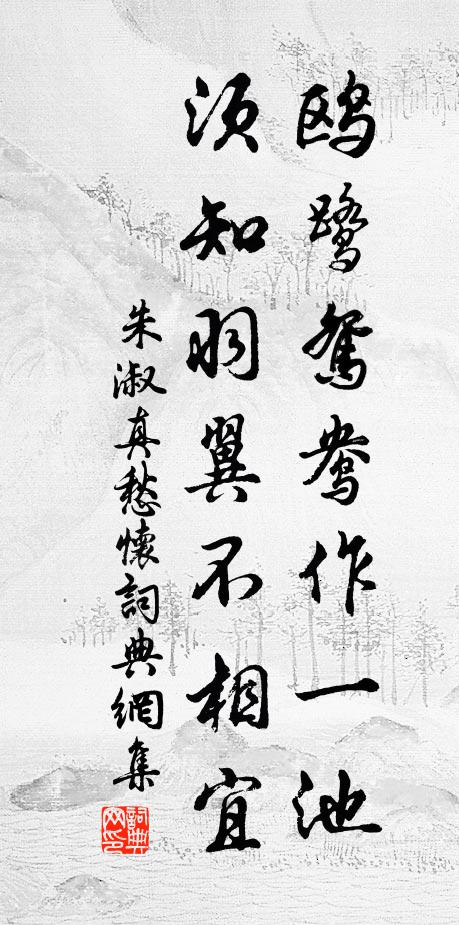 鸥鹭鸳鸯作一池
须知羽翼不相宜
朱淑真愁懷詞典網集
詞典网印